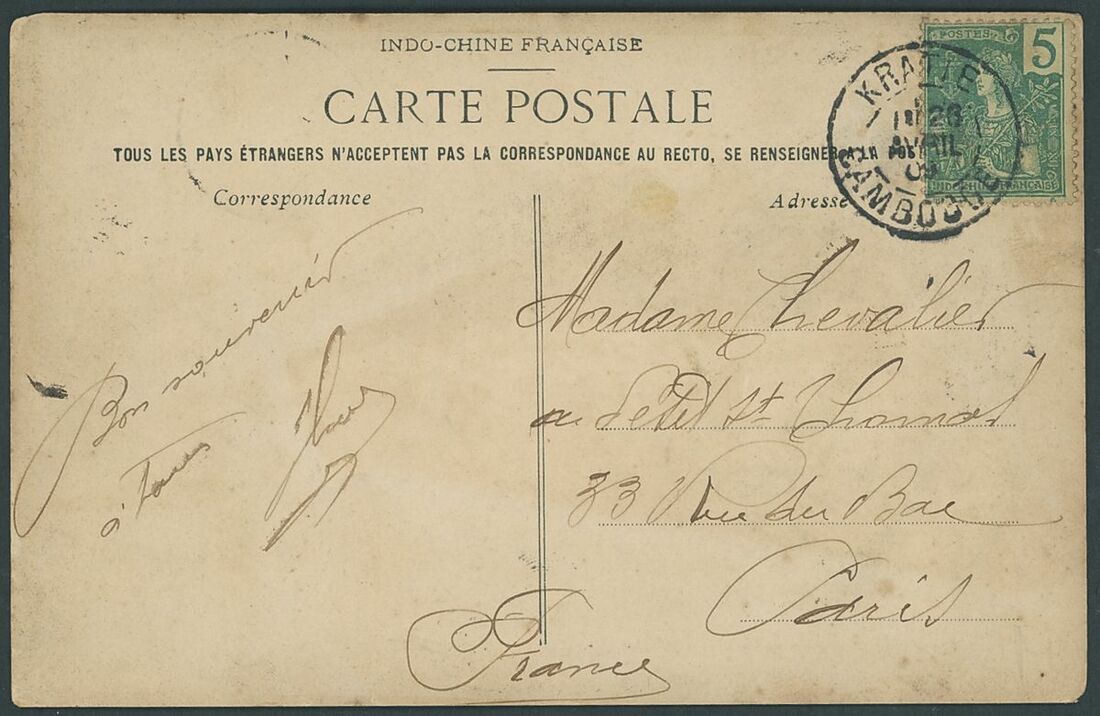 INDO-CHINE FRANÇAISE
CARTE POSTALE
TOUS LES PAYS ÉTRANGERS N'ACCEPTENT PAS LA CORRESPONDANCE AU RECTO, SE RENSEIGNER A LA POSTE
Correspondance
Adresse
POSTES
5
INDO-CHINE FRANÇAISE
KRATIE
28
AVRIL
CAMBODGE
Bon souvenir
à Tous
Madame Chevalier
au Petit St Thomas
33 Rue du Bac
Paris
France